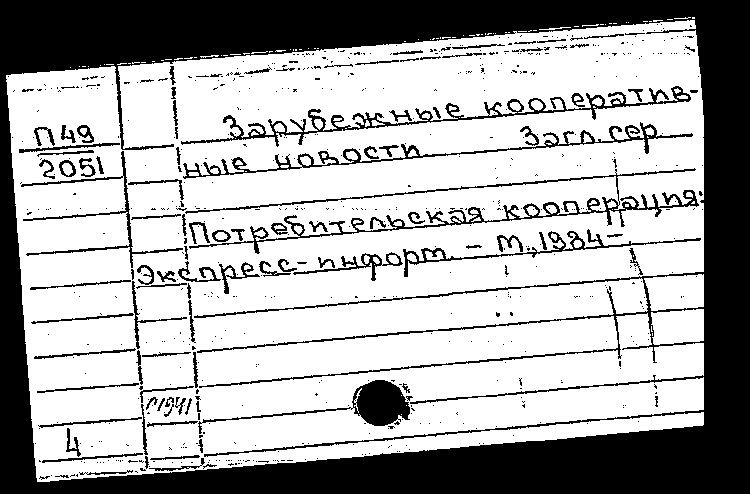 П49
2051
Зарубежные кооператив-
ные новости Загл. сер.
Потребительская кооперация:
Экспресс-информ. – М., 1984–
4